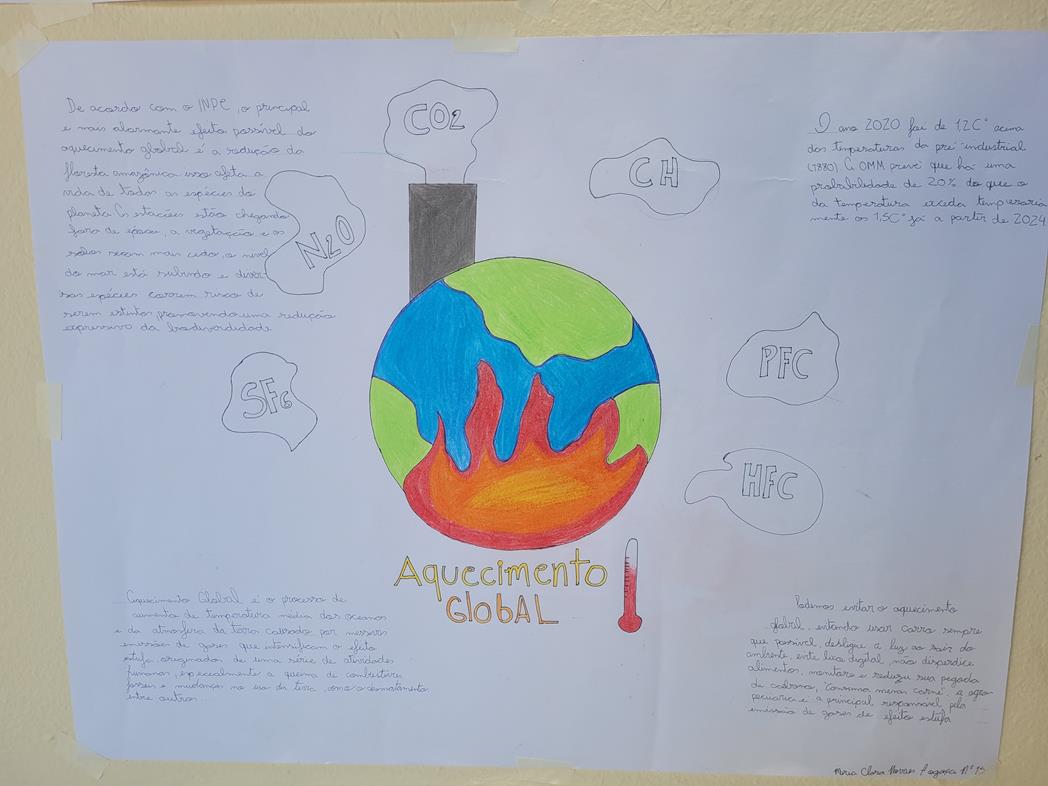 De acordo com o INPE, o principal
e mais alarmante efeito possível do
aquecimento global é a redução da
floresta amazônica isso afeta a
vida de todas as espécies do
planeta estações estão chegando
fora de época, a vegetação e os
solos secam mais cedo, o nível
do mar está subindo e diver
sas espécies correm risco de
serem extintas promovendo uma redução
expressiva da biodiversidade
CO2
N2O
CH
SF6
PFC
HFC
O ano 2020 foi de 12C° acima
das temperaturas da pré-industrial
(1880) OMM prevê que há uma
probabilidade de 20% de que o
da temperatura exceda temporaria
mente os 1,5C° já a partir de 2024
Aquecimento
GlobAL
Aquecimento Global é o processo de
aumento de temperatura média dos oceanos
e da atmosfera da terra causado por
emissões de gases que intensificam o efeito
estufa, originados de uma série de atividades
humanas, especialmente a queima de combustíveis
fósseis e mudanças no uso da terra, como o desmatamento
entre outros
Podemos evitar o aquecimento
global, usar carro sempre
que possível, desligue a luz ao sair do
ambiente, evite lixo digital, não disperdice
alimentos, monitore e reduza sua pegada
de carbono, consuma menos carne, a agro
pecuária é a principal responsável pela
emissão de gases de efeito estufa
Maria Clara Novaes Nº 15